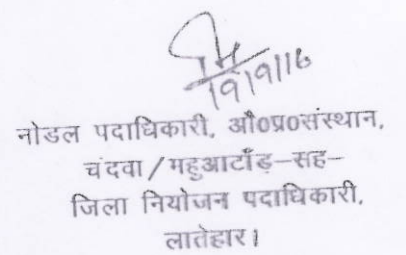 19/9/16
नोडल पदाधिकारी, औ0प्र0संस्थान,
चंदवा/महुआटाँड़-सह-
जिला नियोजन पदाधिकारी,
लातेहार।